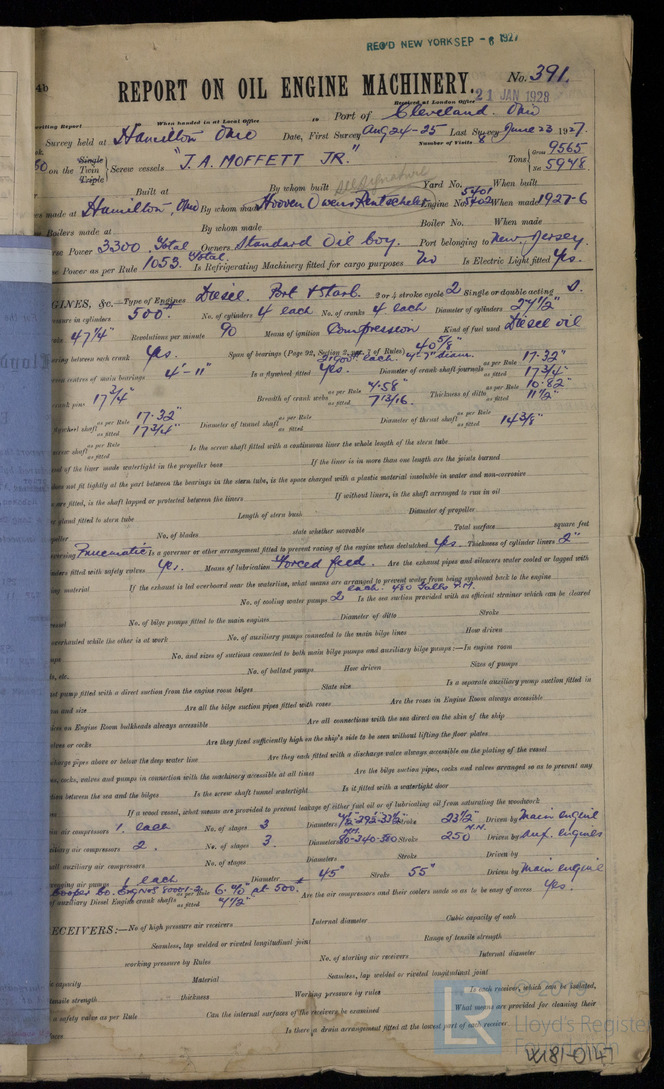 REC'D NEW YORK SEP -6 1927
4b
REPORT ON OIL ENGINE MACHINERY.
No. 391.
21 JAN 1928
When handed in at Local Office
Received at London Office
Port of Cleveland. Ohio
Survey held at Hamilton Ohio Date, First Survey Aug 24-25 Last Survey June 23 1927.
Number of Visits 8
on the Single Twin Triple Screw vessels "J.A. MOFFETT JR." Tons Gross 9565 Net 5948
Built at By whom built Yard No. When built
made at Hamilton, Ohio By whom made Hooven Owens Rentschler Engine No. 5401 5402 When made 1927-6
Boilers made at By whom made Boiler No. When made
Power 3300 Total Owners Standard Oil Coy. Port belonging to New Jersey.
Power as per Rule 1053 Total. Is Refrigerating Machinery fitted for cargo purposes No Is Electric Light fitted Yes.
GINES, &c.—Type of Engines Diesel. Port & Starb. 2 or 4 stroke cycle 2 Single or double acting D.
pressure in cylinders 500 No. of cylinders 4 each No. of cranks 4 each Diameter of cylinders 27½"
47¼" Revolutions per minute 90 Means of ignition Compression Kind of fuel used Diesel oil
bearing between each crank Yes. Span of bearings 40⅝"
centres of main bearings 4'-11" Is a flywheel fitted Yes. Diameter of crank shaft journals as per Rule 17.32" as fitted 17¾"
crank pins 17¾" Breadth of crank webs as per Rule 9.58" as fitted Thickness of ditto as per Rule 10.82" as fitted 11½"
flywheel shaft as per Rule 17.32" as fitted 17¾" Diameter of tunnel shaft as per Rule as fitted Diameter of thrust shaft as per Rule as fitted 14⅜"
screw shaft as per Rule as fitted Is the screw shaft fitted with a continuous liner the whole length of the stern tube
end of the liner made watertight in the propeller boss If the liner is in more than one length are the joints burned
does not fit tightly at the part between the bearings in the stern tube, is the space charged with a plastic material insoluble in water and non-corrosive
are fitted, is the shaft lapped or protected between the liners If without liners, is the shaft arranged to run in oil
gland fitted to stern tube Length of stern bush Diameter of propeller
No. of blades state whether moveable Total surface square feet
Pneumatic Is a governor or other arrangement fitted to prevent racing of the engine when declutched Yes. Thickness of cylinder liners 2"
fitted with safety valves Yes. Means of lubrication Forced feed. Are the exhaust pipes and silencers water cooled or lagged with
material If the exhaust is led overboard near the waterline, what means are arranged to prevent water from being syphoned back to the engine
No. of cooling water pumps 2 each. Is the sea suction provided with an efficient strainer which can be cleared
No. of bilge pumps fitted to the main engines Diameter of ditto Stroke
overhauled while the other is at work No. of auxiliary pumps connected to the main bilge lines How driven
No. and sizes of suctions connected to both main bilge pumps and auxiliary bilge pumps:—In engine room
No. of ballast pumps How driven Sizes of pumps
pump fitted with a direct suction from the engine room bilges State size Is a separate auxiliary pump suction fitted in
and size Are all the bilge suction pipes fitted with roses Are the roses in Engine Room always accessible
on Engine Room bulkheads always accessible Are all connections with the sea direct on the skin of the ship
valves or cocks Are they fixed sufficiently high on the ship's side to be seen without lifting the floor plates
discharge pipes above or below the deep water line Are they each fitted with a discharge valve always accessible on the plating of the vessel
cocks, valves and pumps in connection with the machinery accessible at all times Are the bilge suction pipes, cocks and valves arranged so as to prevent any
between the sea and the bilges Is the screw shaft tunnel watertight Is it fitted with a watertight door
If a wood vessel, what means are provided to prevent leakage of either fuel oil or of lubricating oil from saturating the woodwork
air compressors 1 each No. of stages 3 Diameters Stroke 23½" Driven by Main engine
auxiliary air compressors 2. No. of stages 3. Diameters Stroke 250 Driven by Aux. engines
auxiliary air compressors No. of stages Diameters Stroke Driven by
air pumps 1 each Diameter 45" Stroke 55" Driven by Main engine
auxiliary Diesel Engine crank shafts as per Rule as fitted 7½" at 500. Are the air compressors and their coolers made so as to be easy of access Yes.
ECEIVERS:—No of high pressure air receivers Internal diameter Cubic capacity of each
Seamless, lap welded or riveted longitudinal joint Range of tensile strength
working pressure by Rules No. of starting air receivers Internal diameter
capacity Material Seamless, lap welded or riveted longitudinal joint
tensile strength thickness Working pressure by rules Is each receiver, which can be isolated,
a safety valve as per Rule Can the internal surfaces of the receivers be examined What means are provided for cleaning their
Is there a drain arrangement fitted at the lowest part of each receiver
LR
Lloyd's Register
Foundation
W181-0147